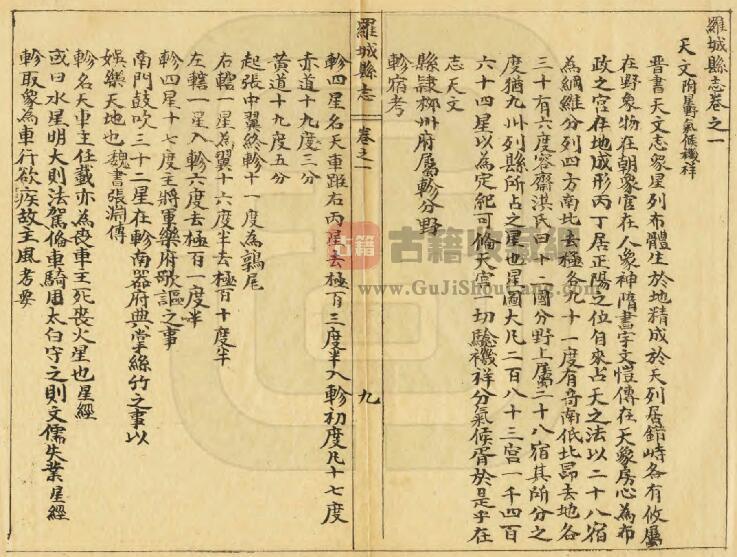 羅城縣志卷之一
天文 附晷氣候禨祥
晋書天文志眾星列布體生於地精成於天列居錯峙各有攸屬
在野象物在朝象官在人象神隋書宇文愷傳在天象房心為布
政之宮在地成形丙丁居正陽之位自來占天之法以二十八宿
為綱維分列四方南北去極各九十一度有奇南低北昂去地各
三十有六度容齋洪氏曰十二國分野上屬二十八宿其所分之
度猶九州列縣所占之星也星圖大凡二百八十三宮一千四百
六十四星以為定紀可備天官一切驗禨祥分氣候胥於是乎在
志天文
縣隸柳州府屬軫分野
軫宿考
羅城縣志
卷之一
九
軫四星名天車距右丙星去極百三度半入軫初度凡十七度
赤道十九度三分
黃道十九度五分
起張中翼終軫十一度為鶉尾
右轄一星為翼十六度半去極百十度半
左轄一星入軫六度去極百一度半
軫四星十七度主將軍樂府歌謳之事
南門鼓吹三十二星在軫南器府典掌絲竹之事以
娛樂天地也 魏書張淵傳
軫名天車主任載亦為喪車主死喪火星也星經
或曰水星明大則法駕備車騎用太白守之則文儒失業 星經
軫取象為車行欲疾故主風考要
古籍收藏網
www.GuJiShouCang.com
古籍